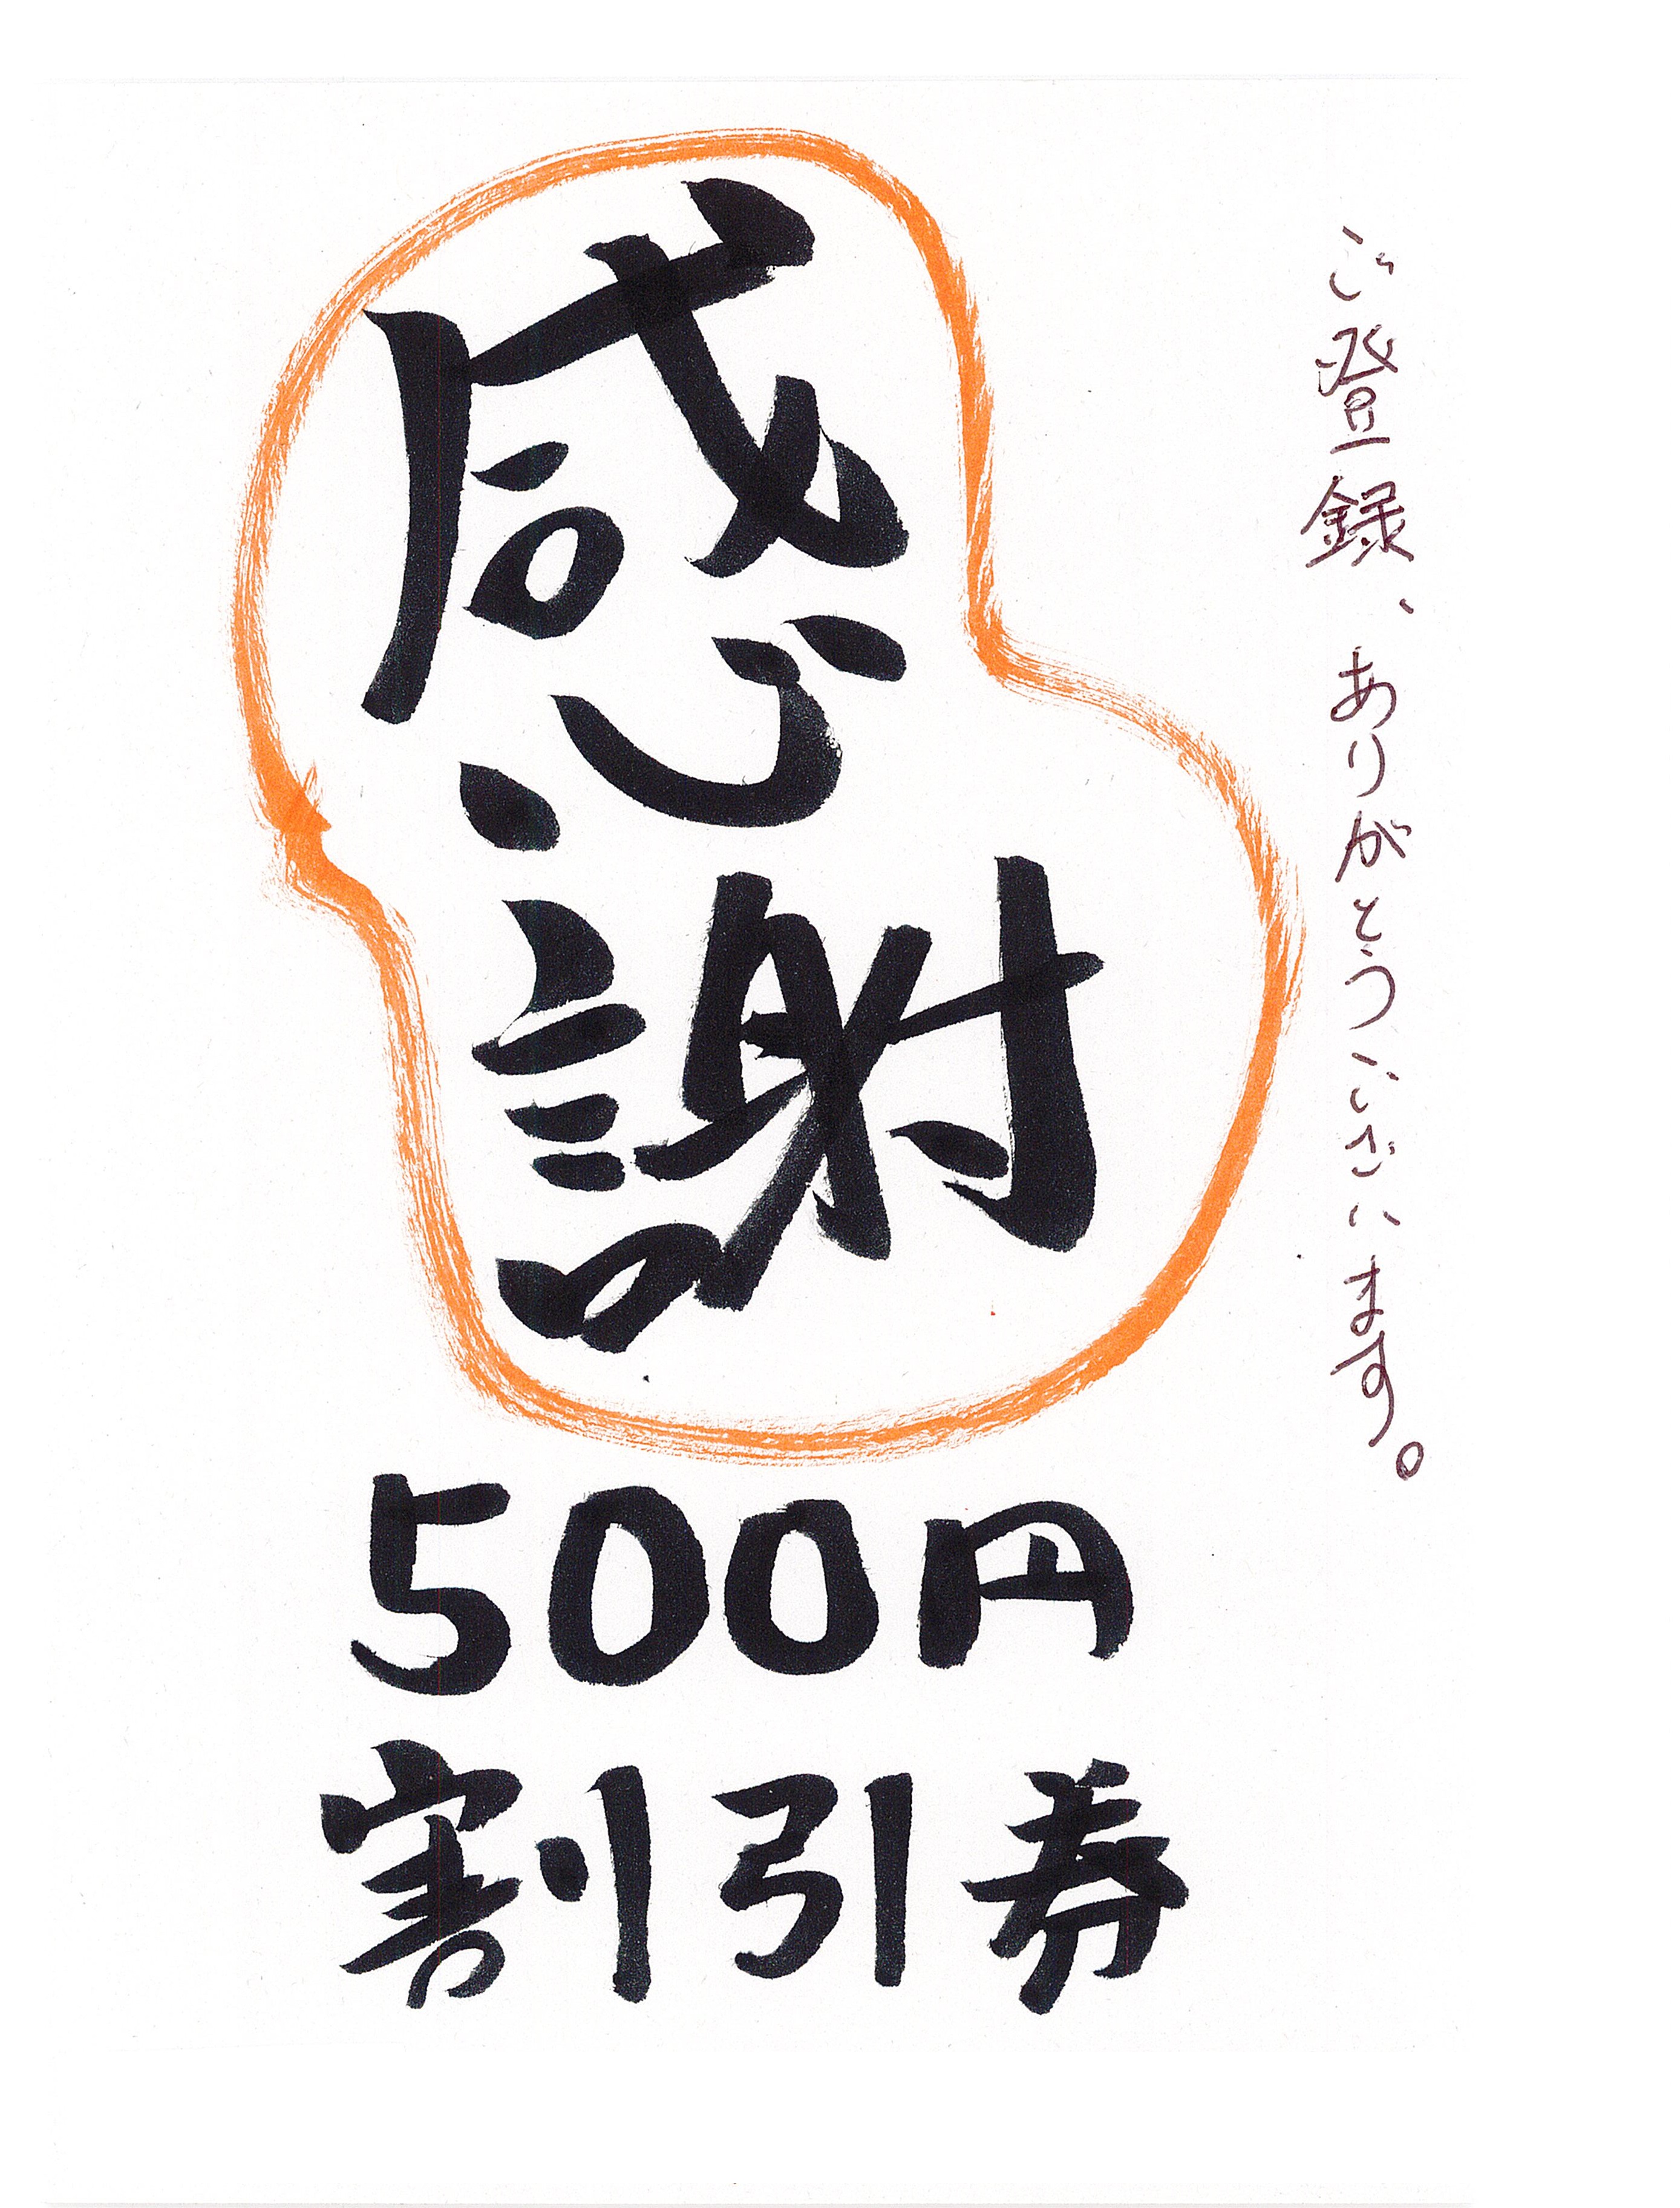 ご登録、ありがとうございます。
感謝
500円
割引券